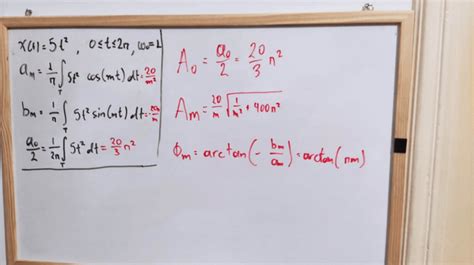 x(t) = 5t², 0≤t≤2π, ω₀=1
aₘ = 1/π ∫_T 5t² cos(mt) dt = 20/m²
bₘ = 1/π ∫_T 5t² sin(mt) dt =
a₀/2 = 1/2π ∫_T 5t² dt = 20/3 π²
A₀ = a₀/2 = 20/3 π²
Aₘ = 20/m √(1/m² + 400π²)
ϕₘ = arctan(- bₘ/aₘ) = arctan(πm)